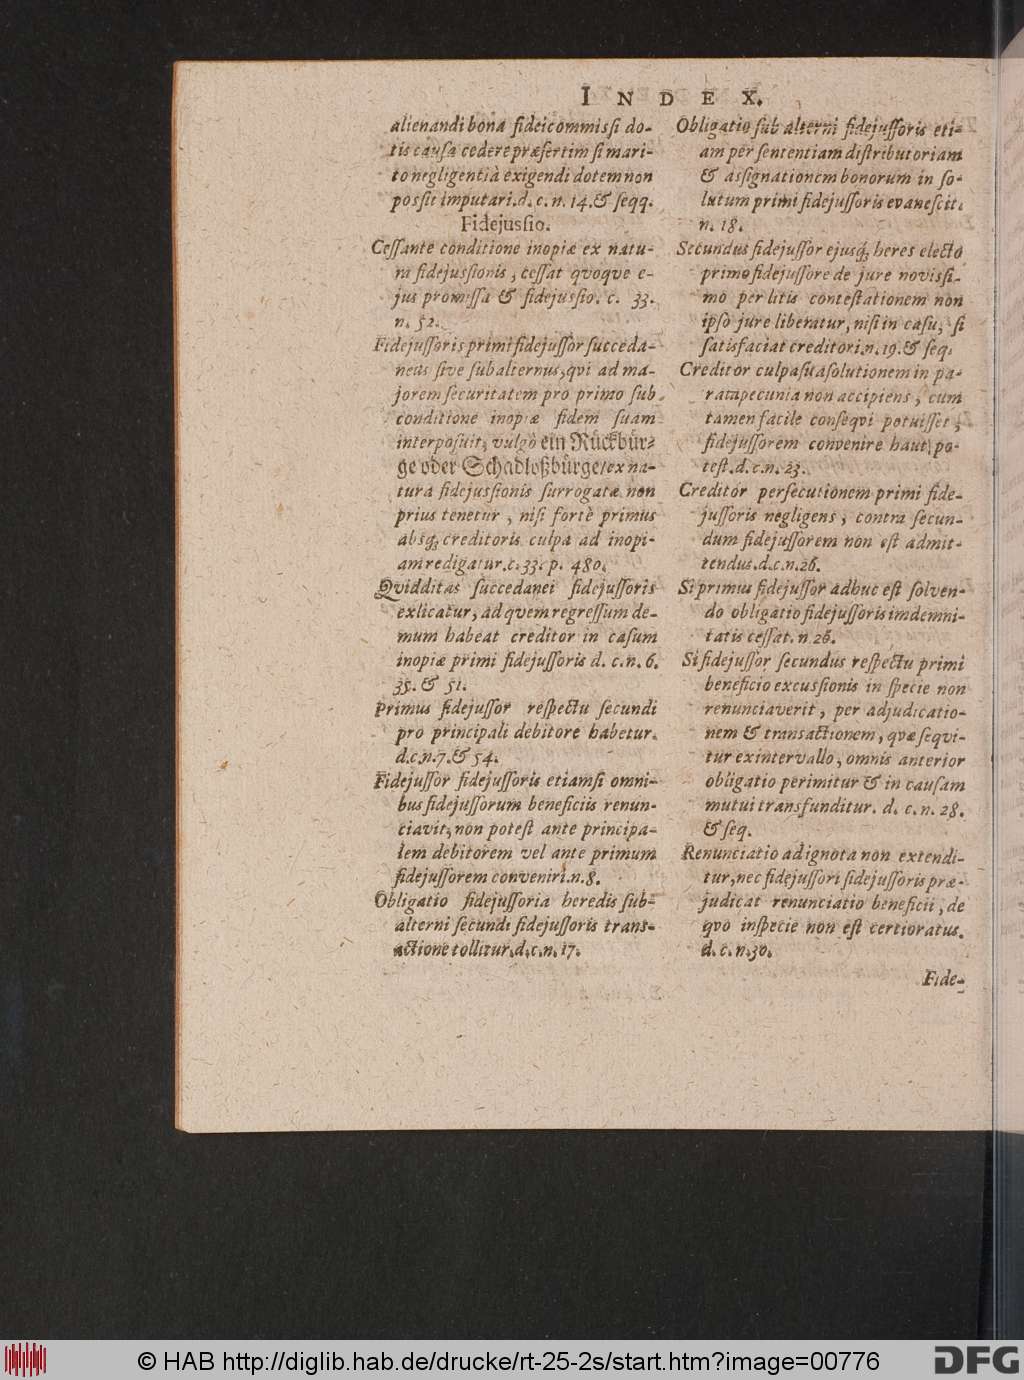 INDEX.
alienandi bona fideicommissi do-
tis causa cedere præsertim si mari-
to negligentià exigendi dotem non
possit imputari. d. c. n. 14. & seqq.
Fidejussio.
Cessante conditione inopiæ ex natu-
ra fidejussionis, cessat qvoqve e-
jus promissa & fidejussio. c. 33.
n. 52.
Fidejussoris primi fidejussor succeda-
neus sive subalternus, qvi ad ma-
jorem securitatem pro primo sub
conditione inopiæ fidem suam
interposuit, vulgò ein Rückbür-
ge oder Schadloßbürge/ ex na-
tura fidejussionis surrogatæ non
prius tenetur, nisi fortè primus
absq; creditoris culpa ad inopi-
am redigatur. c. 33. p. 480.
Qvidditas succedanei fidejussoris
exlicatur, ad qvem regressum de-
mum habeat creditor in casum
inopiæ primi fidejussoris d. c. n. 6.
35. & 51.
Primus fidejussor respectu secundi
pro principali debitore habetur.
d. c. n. 7. & 54.
Fidejussor fidejussoris etiamsi omni-
bus fidejussorum beneficiis renun-
ciavit, non potest ante principa-
lem debitorem vel ante primum
fidejussorem conveniri. n. 8.
Obligatio fidejussoria heredis sub-
alterni secundi fidejussoris trans-
actione tollitur. d. c. n. 17.
Obligatio sub alterni fidejussoris eti-
am per sententiam distributoriam
& assignationem bonorum in so-
lutum primi fidejussoris evanescit.
n. 18.
Secundus fidejussor ejusq; heres electo
primo fidejussore de jure novissi-
mo per litis contestationem non
ipso jure liberatur, nisi in casu, si
satisfaciat creditori. n. 19. & seq.
Creditor culpa sua solutionem in pa-
rata pecunia non accipiens, cum
tamen facile conseqvi potuisset,
fidejussorem convenire haut po-
test. d. c. n. 23.
Creditor persecutionem primi fide-
jussoris negligens, contra secun-
dum fidejussorem non est admit-
tendus. d. c. n. 26.
Si primus fidejussor adhuc est solven-
do obligatio fidejussoris imdemni-
tatis cessat. n 26.
Si fidejussor secundus respectu primi
beneficio excussionis in specie non
renunciaverit, per adjudicatio-
nem & transactionem, qvæ seqvi-
tur ex intervallo, omnis anterior
obligatio perimitur & in causam
mutui transfunditur. d. c. n. 28.
& seq.
Renunciatio ad ignota non extendi-
tur, nec fidejussori fidejussoris præ-
judicat renunciatio beneficii, de
qvo inspecie non est certioratus.
d. c. n. 30.
Fide-
© HAB http://diglib.hab.de/drucke/rt-25-2s/start.htm?image=00776
DFG